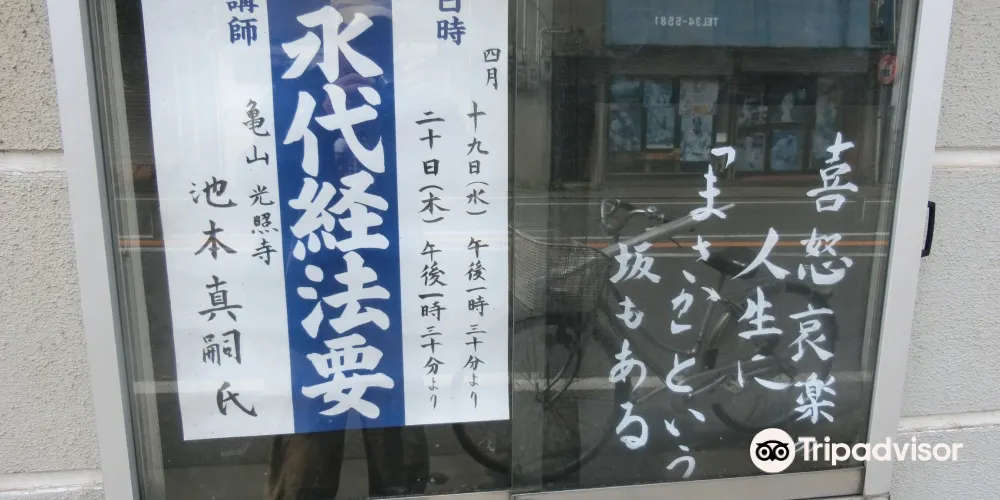 喜怒哀楽
人生に
「まさか」という
坂もある
日時
四月
十九日(水) 午後一時三十分より
二十日(木) 午後一時三十分より
永代経法要
講師
亀山 光照寺
池本真嗣氏
TEL34-5581
Tripadvisor